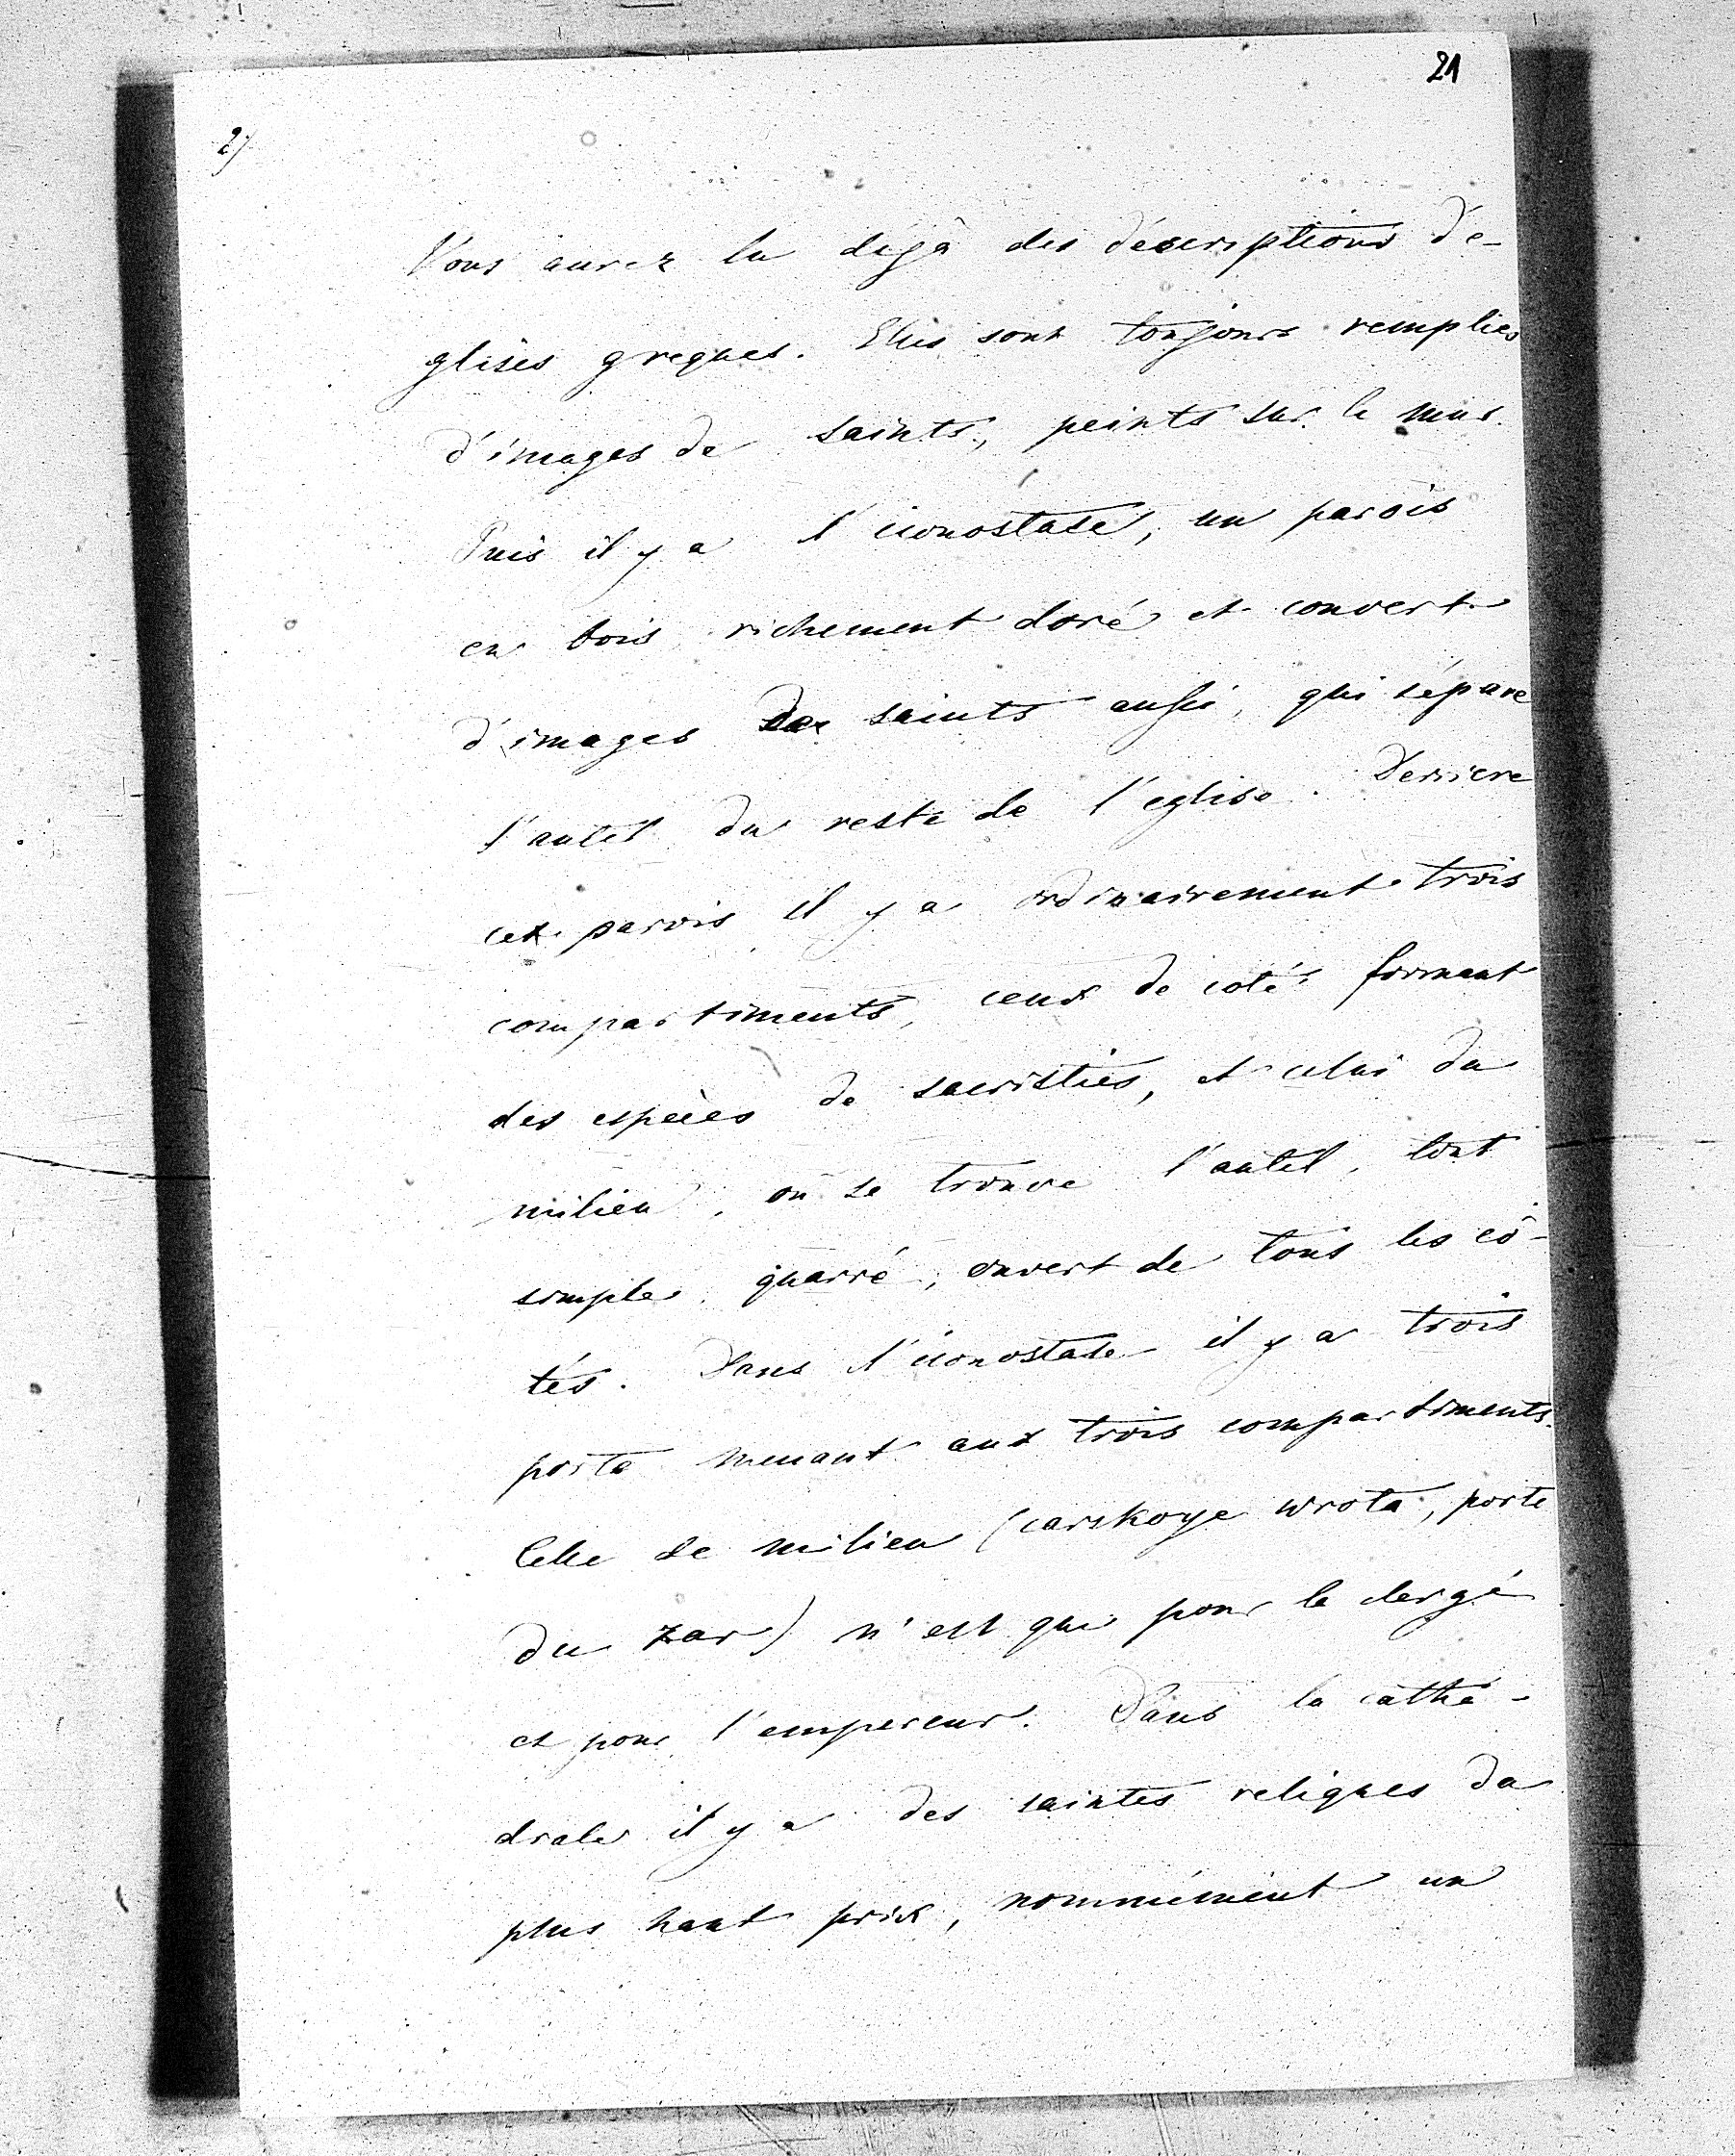 21
2)
Vous aurez lu dejà des descriptions d'é-
glises greques. Elles sont toujours remplies
d'images de saints, peints sur le mur.
Puis il y a l'iconostase, un parois
en bois richement doré et couvert
d'images de saints aussi, qui sépare
l'autel du reste de l'eglise. Derriere
cet parois il y a ordinairement trois
compartiments, ceux de coté forment
des espèces de sacristies, et celui du
milieu, où se trouve l'autel, tout
simple, quarré, ouvert de tous les cô-
tés. Dans l'iconostase il y a trois
porte menant aux trois compartiments.
Celle de milieu (carskoye wrota, porte
du zar) n'est que pour le clergé
et pour l'empereur. Dans la cathé-
drale il y a des saintes reliques du
plus haut prix, nommément un